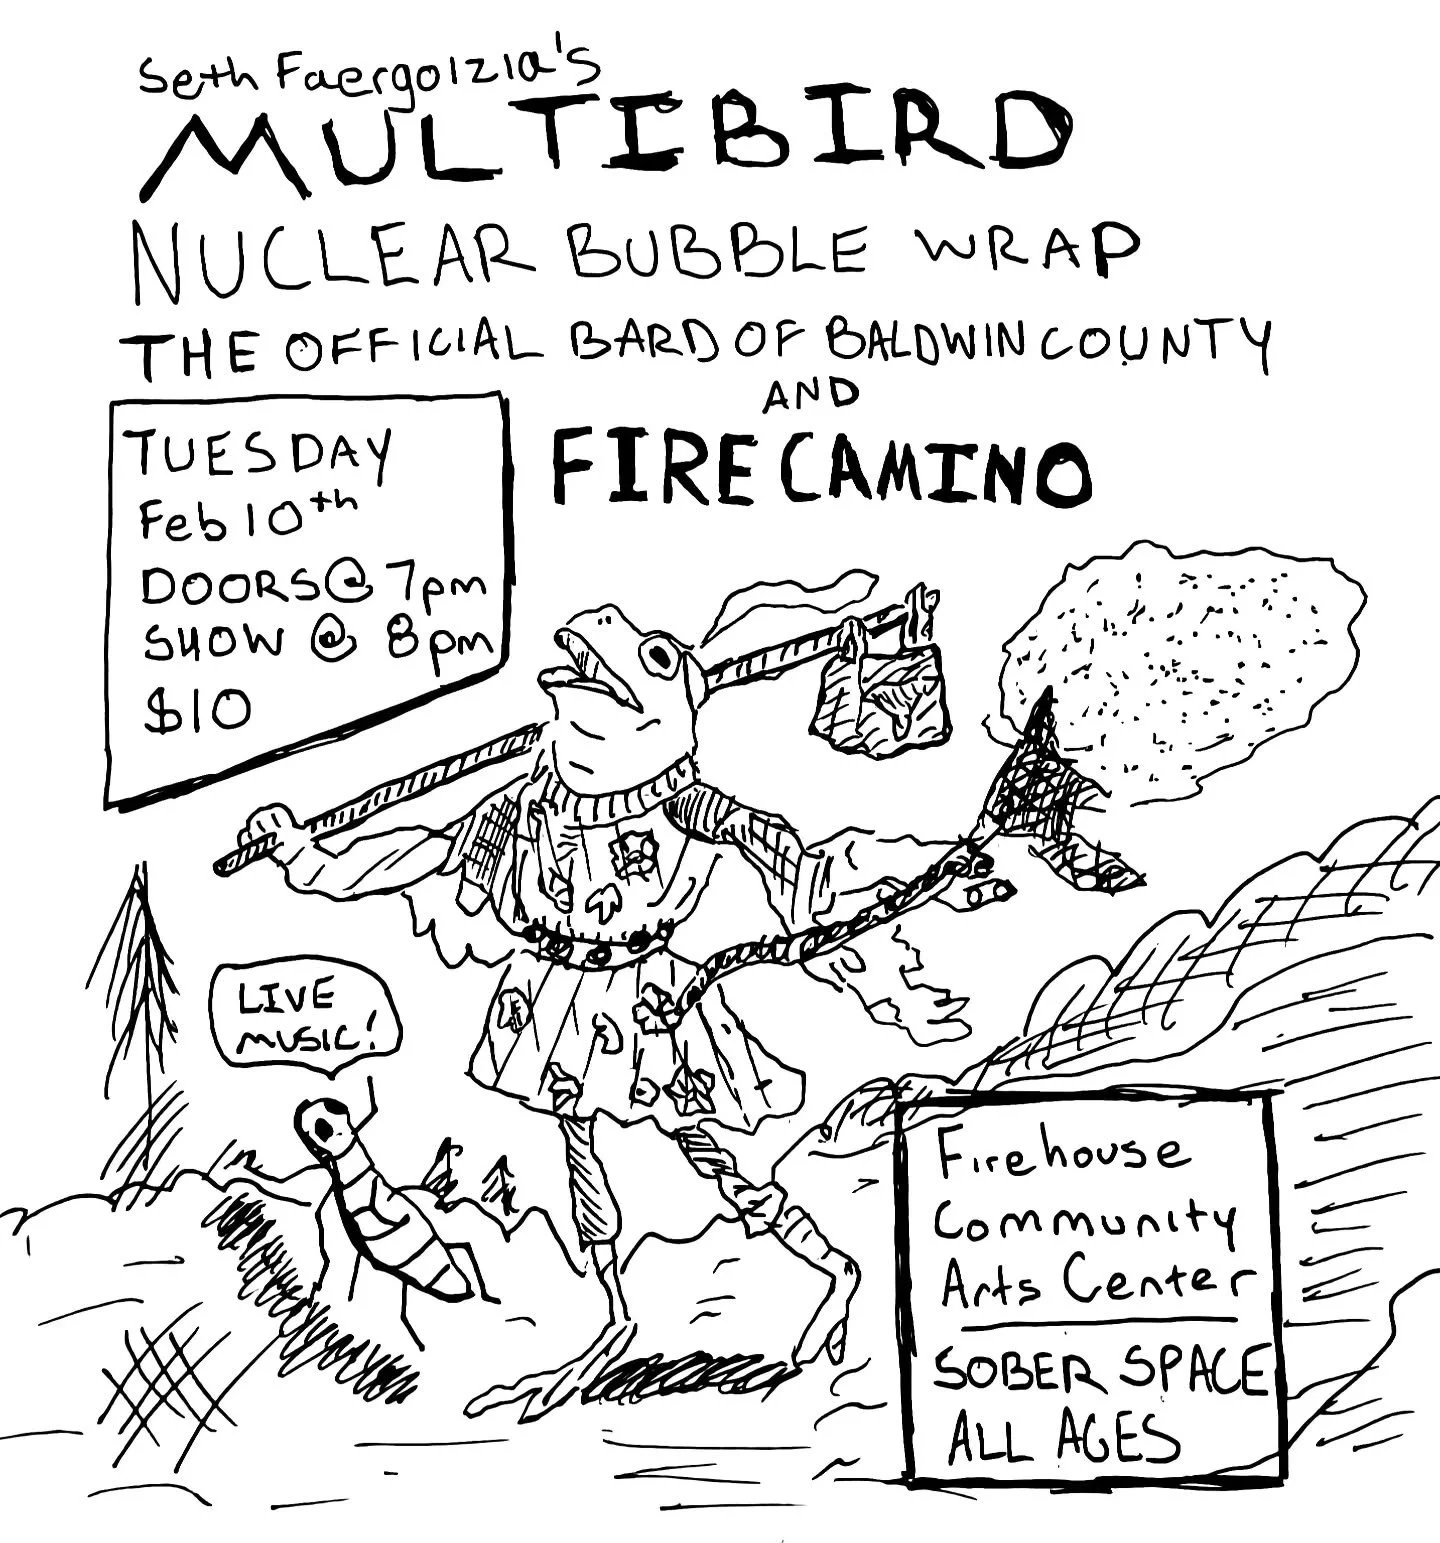 Seth Faergolzia's
MULTIBIRD
NUCLEAR BUBBLE WRAP
THE OFFICIAL BARD OF BALDWIN COUNTY
AND
FIRE CAMINO
TUESDAY
Feb 10th
DOORS @ 7pm
SHOW @ 8pm
$10
LIVE
MUSIC!
Firehouse
Community
Arts Center
SOBER SPACE
ALL AGES